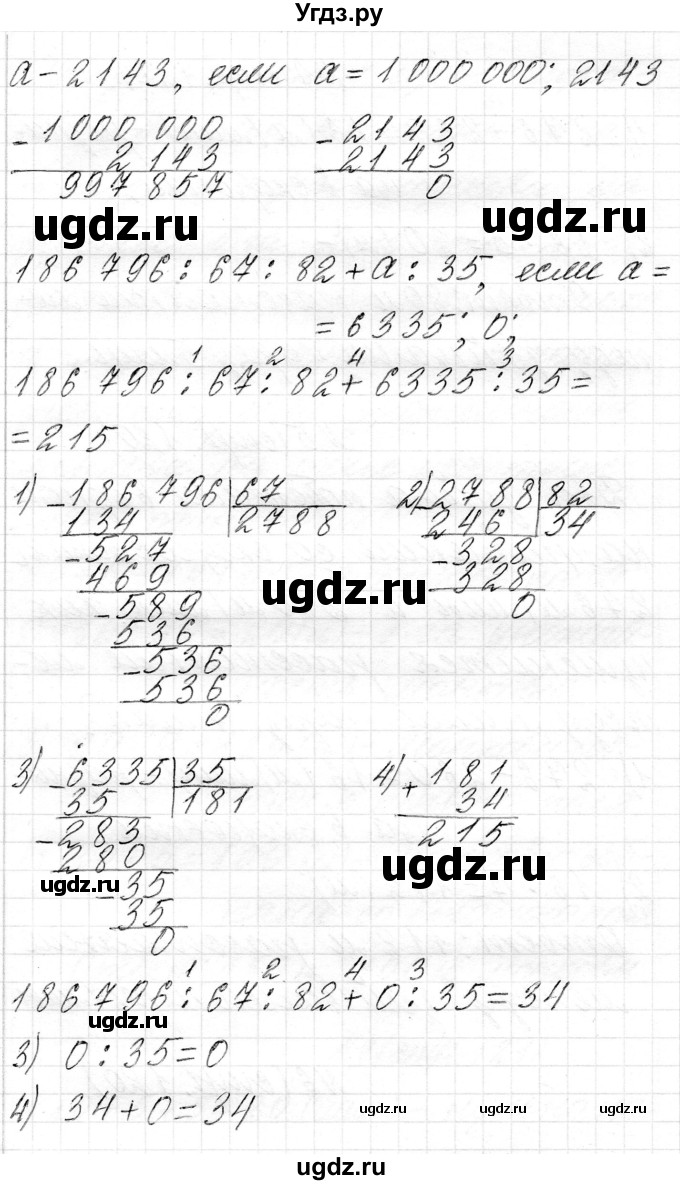 Угдз.ру
a - 2143, если a = 1 000 000; 2143
- 1 000 000
2 143
997 857
- 2143
2143
0
ugdz.ru
ugdz.ru
186 796 : 67 : 82 + a : 35, если a =
= 6335; 0;
1 2 4 3
186 796 : 67 : 82 + 6335 : 35 =
= 215
1) - 186 796 | 67
134 2788
- 527
469
- 589
536
- 536
536
0
2) - 2788 | 82
246 34
- 328
328
0
ugdz.ru
ugdz.ru
3) - 6335 | 35
35 181
- 283
280
- 35
35
0
4) + 181
34
215
ugdz.ru
ugdz.ru
1 2 4 3
186 796 : 67 : 82 + 0 : 35 = 34
ugdz.ru
3) 0 : 35 = 0
4) 34 + 0 = 34
ugdz.ru ugdz.ru ugdz.ru
ugdz.ru